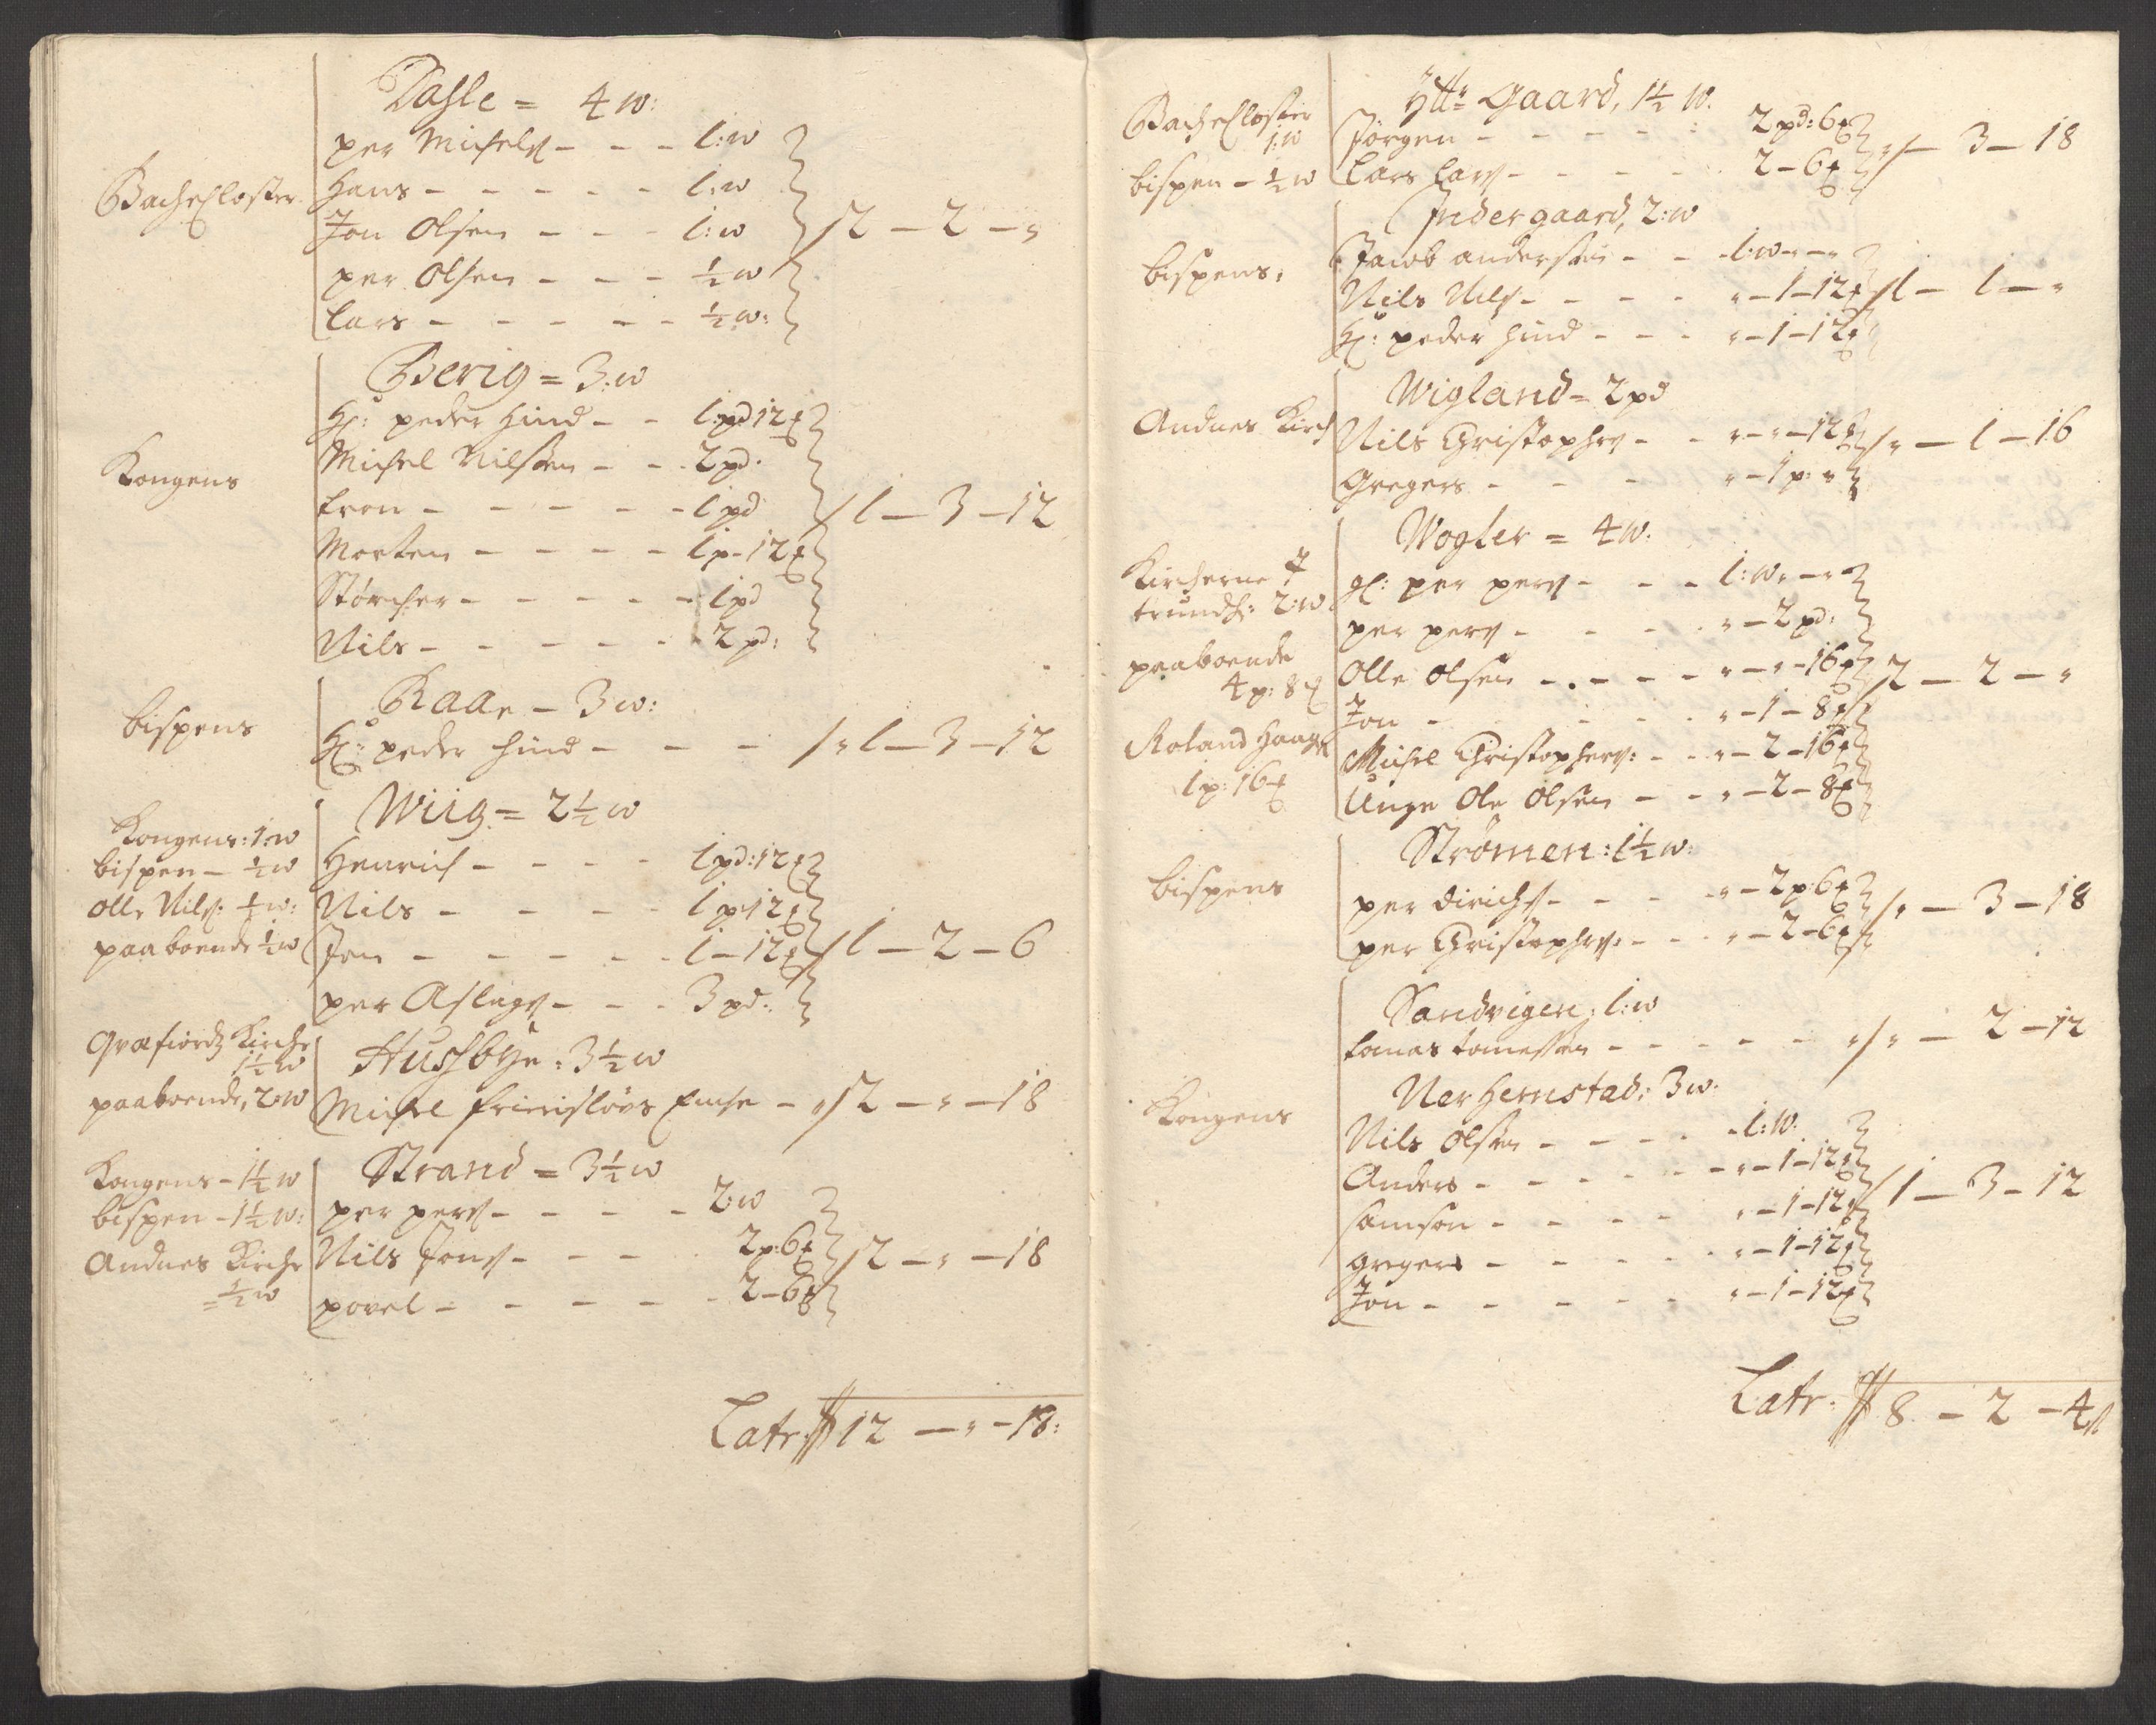 Dahle = 4 w:
Bache Closter
per Michels - - - 1:w
Hans - - - - - 1:w
Jon Olsen - - - 1:w 2 - 2 - "
per Olsen - - - ½ w
Lars - - - - - ½ w:
Berig = 3:w
Kongens
Hr: peder Hind - - 1:pd 12
Michel Nilssen - - 2 pd.
tron - - - - - 1 pd 1 - 3 - 12
Morten - - - - 1 p - 12
Størcher - - - - - 1 pd
Nils - - - - - 2 pd:
Raae - 3 w:
bispens
Hr: peder hind - - - " 1 - 3 - 12
Wiig = 2½ w
Kongens: 1:w
bispen - ½ w
Olle Nils: ½ w:
paaboende ½ w
Henrich - - - - 1 pd: 12
Nils - - - - 1 p 12
Jon - - - - - 1 - 12 1 - 2 - 6
per Aslags - - - 3 pd:
Husbye: 3½ w
Kirche
1½ w
paaboende, 2:w
Michel Enche - " 2 - " - 18
Strand = 3½ w
Kongens - 1½ w
bispen - 1½ w:
Andnes Kirche
= ½ w
per pers - - - - 2:w
Nils Jons - - - 2 p: 6 2 - " - 18
povel - - - - - 2 - 6
Latr 12 - " - 18:
Ytt: Gaard, 1½ w.
Bache Closter
1:w
bispen - ½ w
Jørgen - - - - - 2 pd: 6
Lars Lars - - - - 2 - 6 " - 3 - 18
Indergaard, 2:w
bispens,
Jacob andersen - - 1:w - " - "
Nils Nils - - - - " - 1 - 12 1 - 1 - "
Hr: peder hind - - - " - 1 - 12
Wigland = 2 pd
Andnes Kirch
Nils Christophers - - " - " - 12 " - 1 - 16
Gregers - - - " - 1 p: "
Wogler = 4 w:
Kircherne
trundh: 2:w
paaboende
4 p: 8
Roland Haagen
1 p: 16
gl: per pers - - - 1:w " - "
per pers - - - - " - 2 pd:
Olle olsen - - - - " - " - 16 2 - 2 - "
Jon - - - - " - 1 - 8
Michel Christophers: - - " - 2 - 16
Unge Ole Olsen - - " - 2 - 8
Strømen: 1½ w:
bispens
per dirichs - - - - " - 2 p: 6
per Christophers: - - " - 2 - 6 " - 3 - 18
Sandvigen: 1:w
tomas tomessen - - - - - " " - 2 - 12
Ner Hemstad: 3 w:
Kongens
Nils Olsen - - - - - 1:w.
Anders - - - - - " - 1 - 12
samson - - - - " - 1 - 12 1 - 3 - 12
gregers - - - - - " - 1 - 12
Jon - - - - - " - 1 - 12
Latr. 8 - 2 - 4